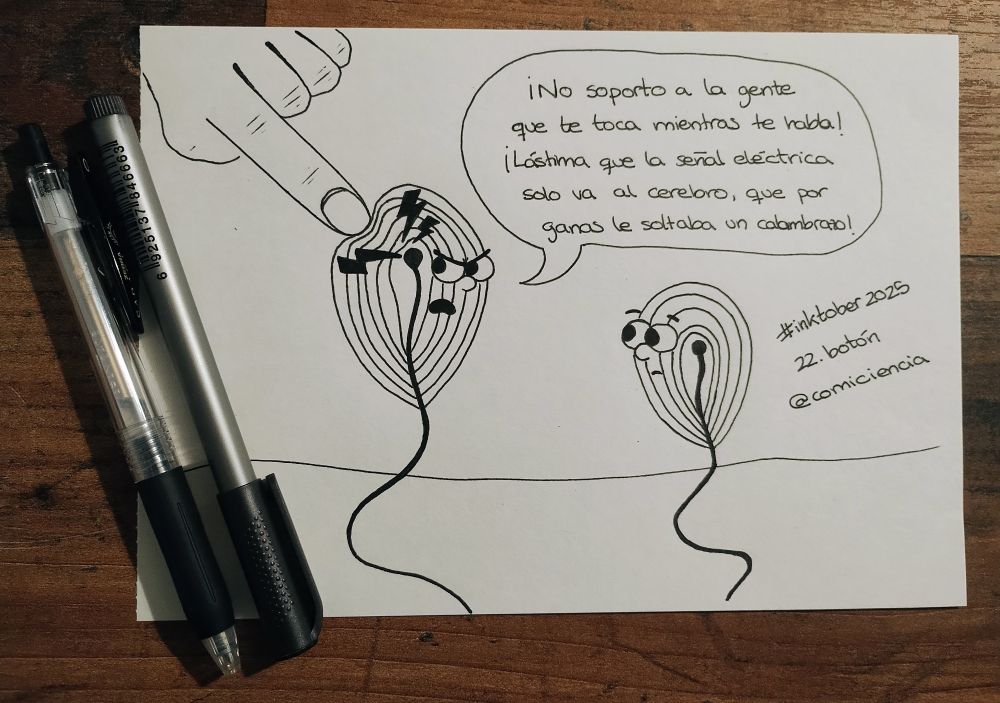 ¡No soporto a la gente
que te toca mientras te habla!
¡Lástima que la señal eléctrica
solo va al cerebro, que por
ganas le soltaba un calambrazo!
#inktober 2025
22. botón
@comiciencia
6925137846663